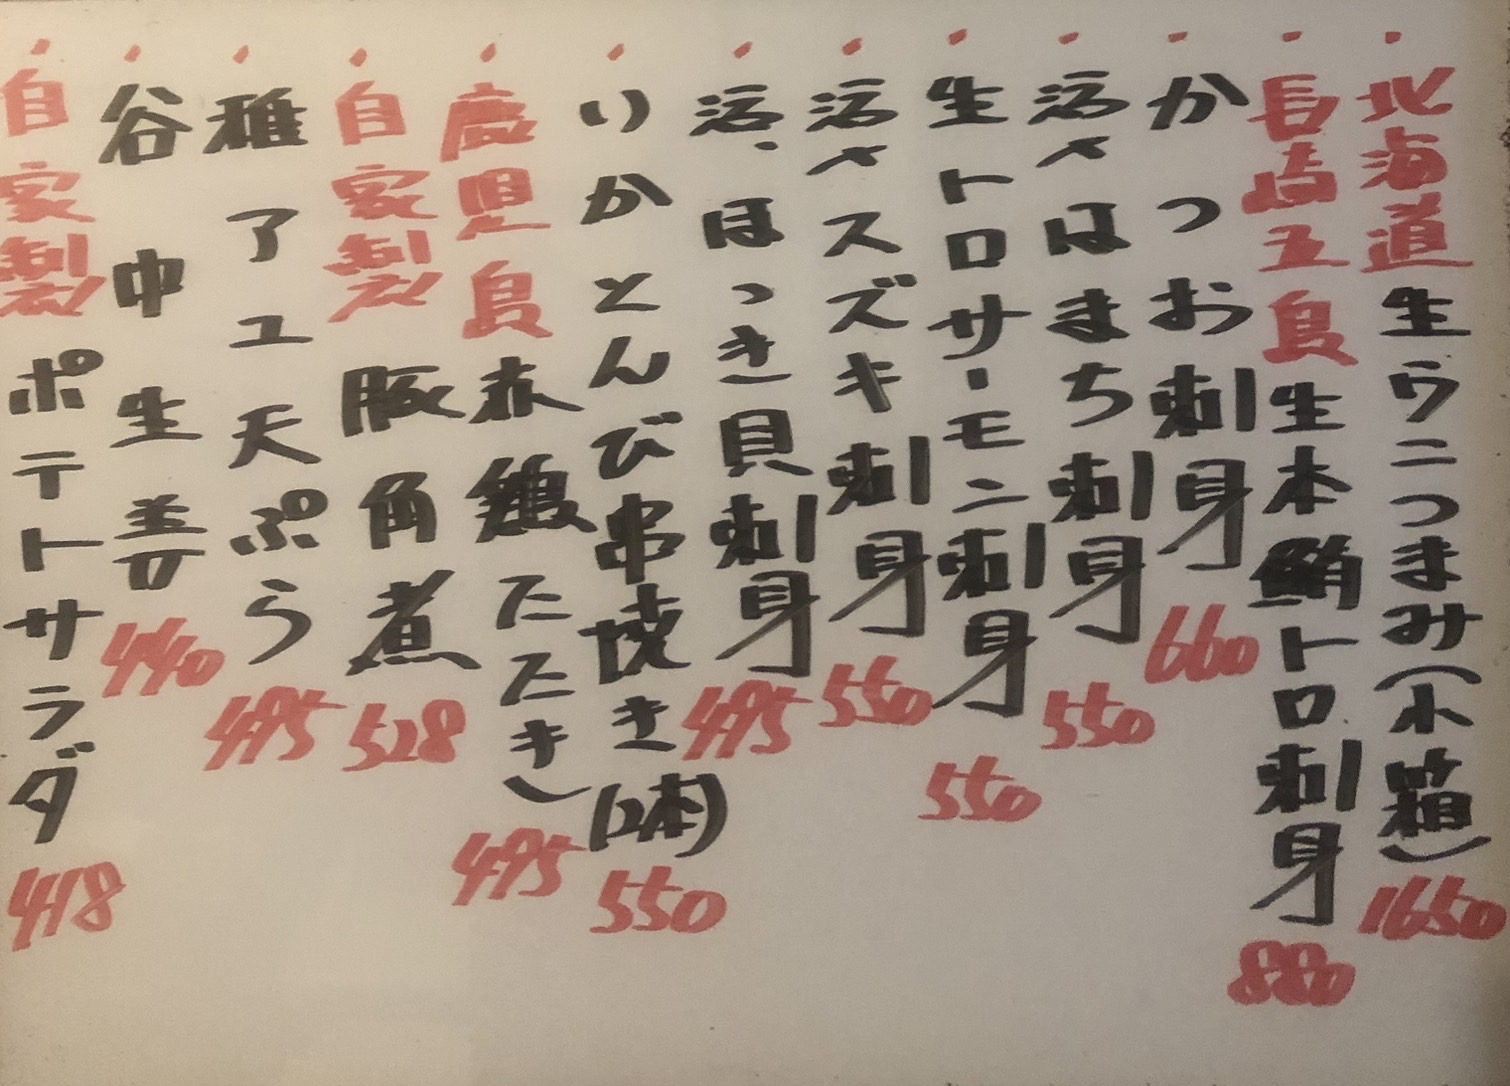 ・北海道生ウニつまみ(小箱)1650
・長崎五島生本鮪トロ刺身880
・かつお刺身660
・活〆はまち刺身550
・生トロサーモン刺身550
・活〆スズキ刺身550
・活、ほっき貝刺身495
・いかとんび串焼き(2本)550
・鹿児島赤鶏たたき495
・自家製豚角煮528
・稚アユ天ぷら495
・谷中生姜440
・自家製ポテトサラダ418